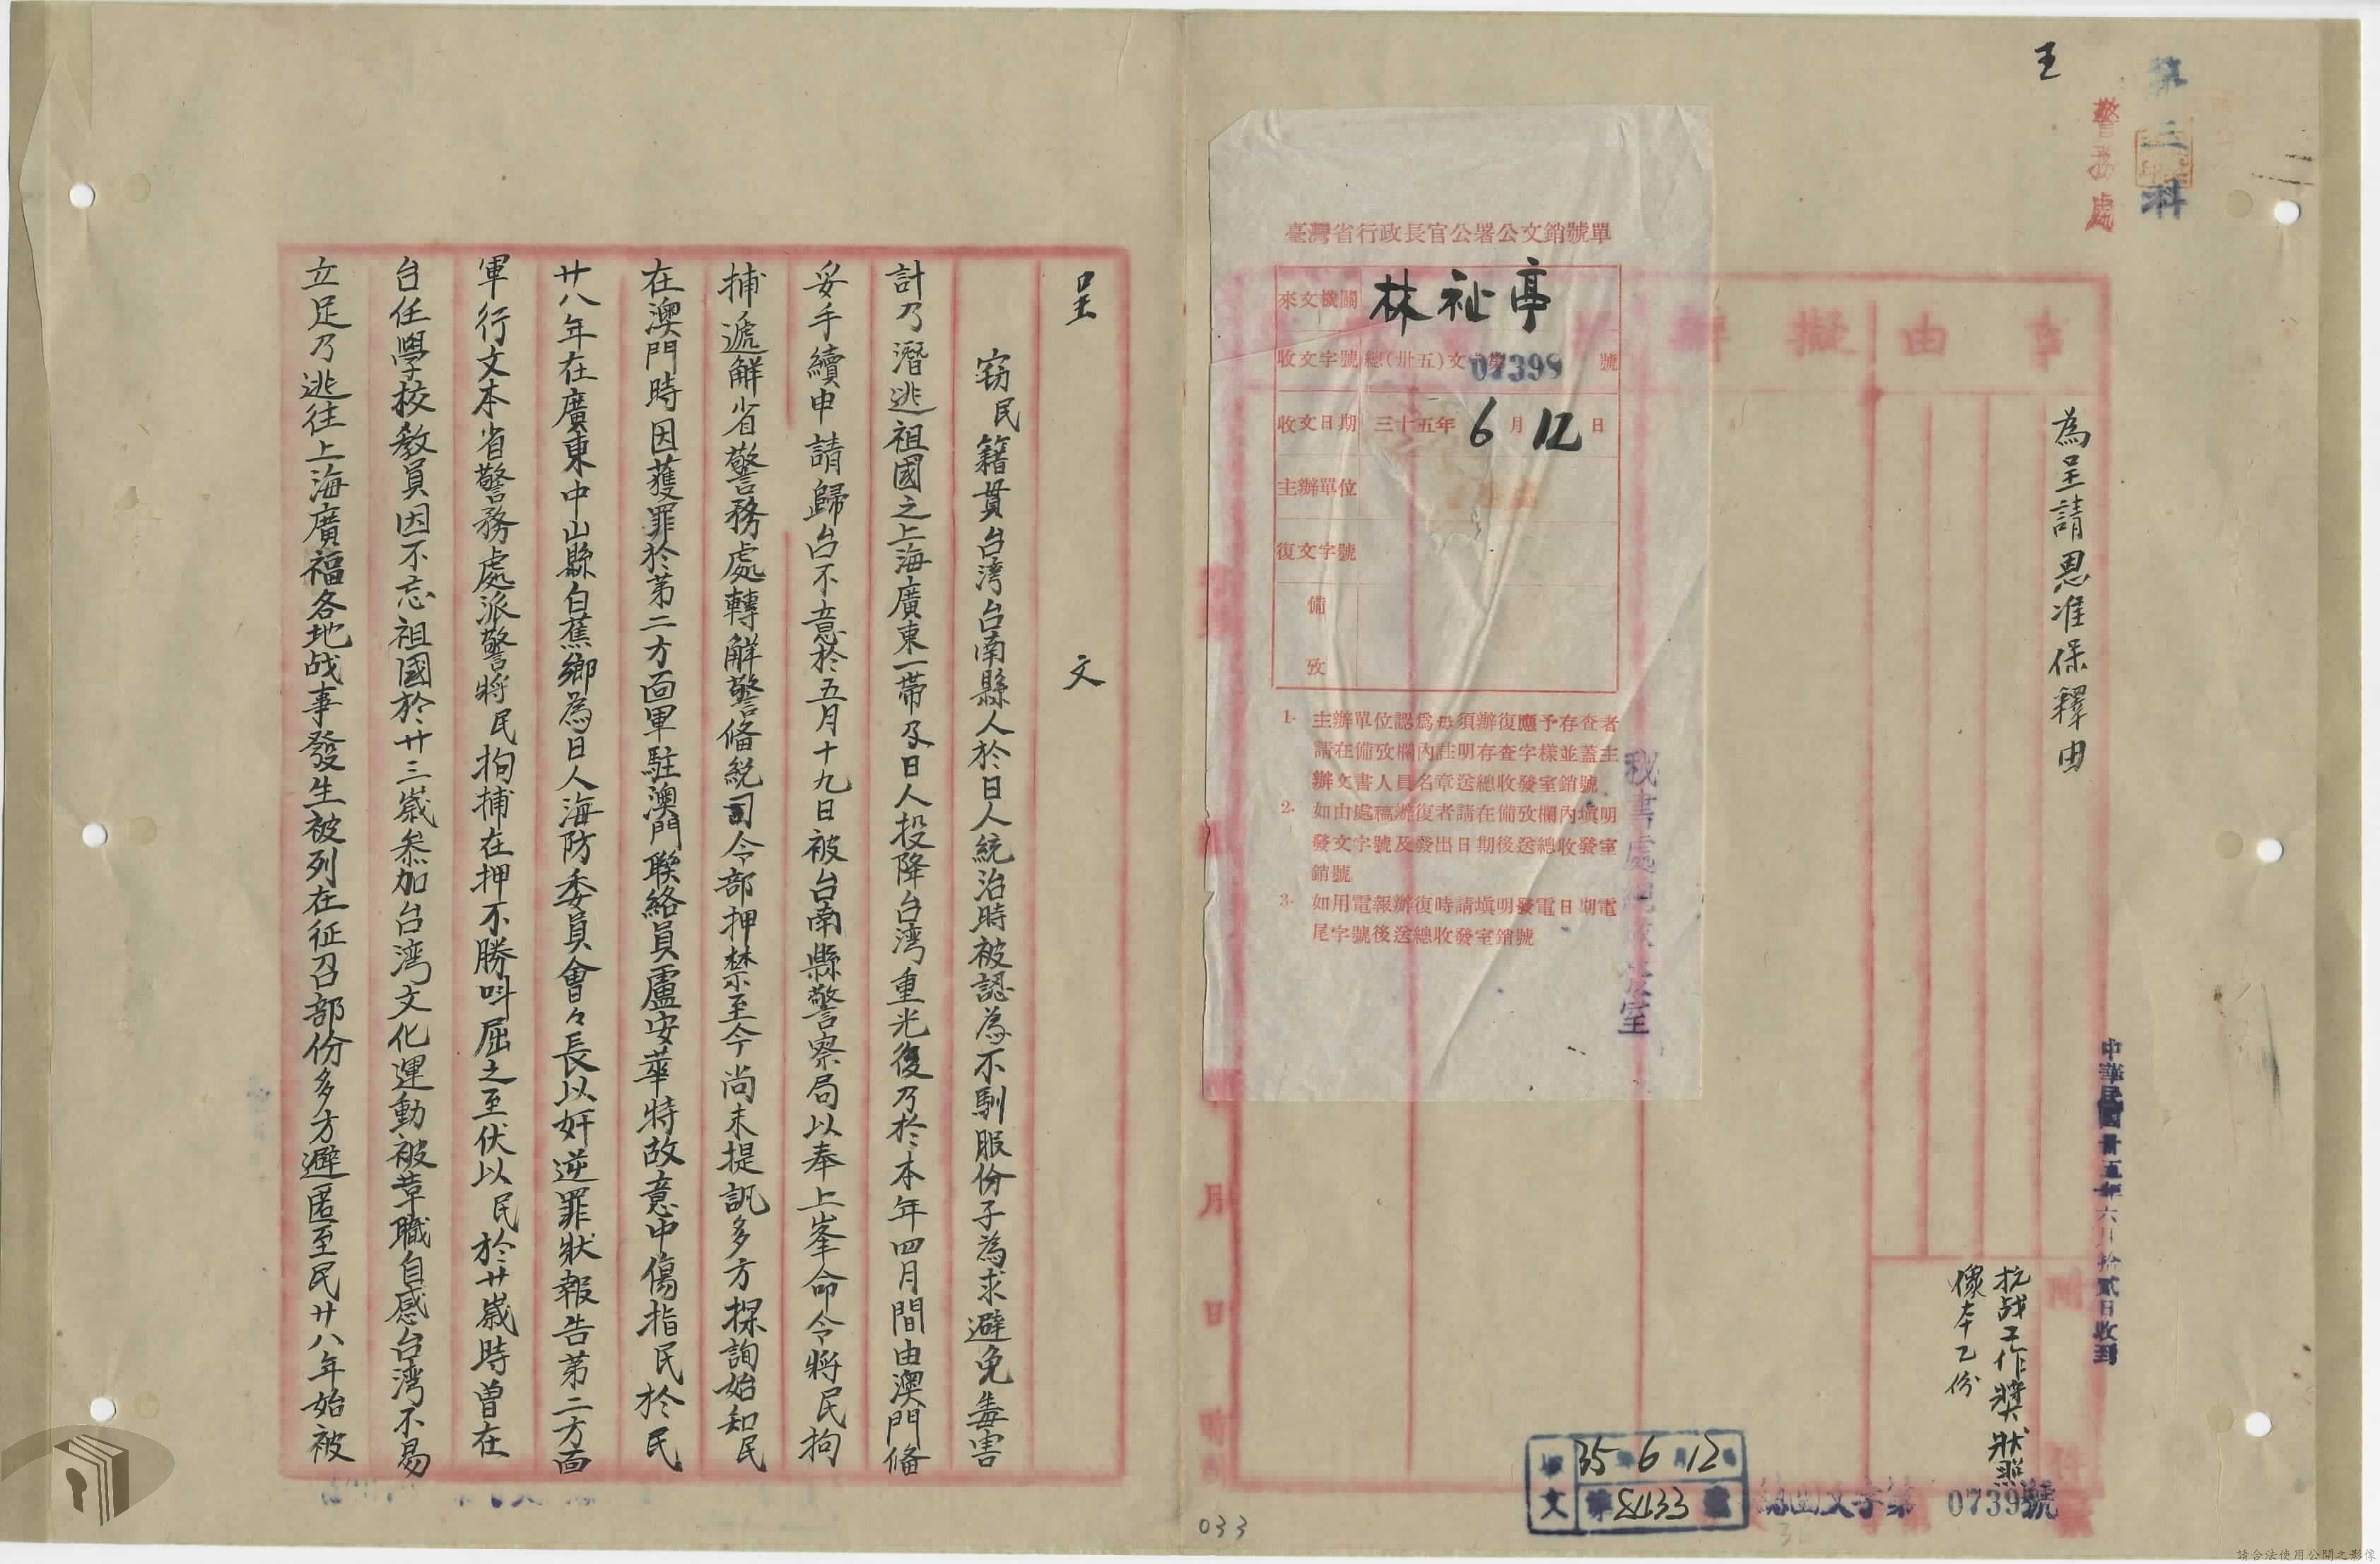 王
第三科
警務處
事由擬辦
為呈請恩准保釋由
中華民國卅五年六月拾貳日收到
附件
抗战工作獎狀照
像本乙份
臺灣省行政長官公署公文銷號單
來文機關 林祉亭
收文字號 總(卅五)文字第07399號
收文日期 三十五年6月12日
主辦單位
復文字號
備攷
1. 主辦單位認爲毋須辦復應予存查者
請在備攷欄內註明存查字樣並蓋主
辦文書人員名章送總收發室銷號
2. 如由處稿辦復者請在備攷欄內塡明
發文字號及發出日期後送總收發室
銷號
3. 如用電報辦復時請塡明發電日期電
尾字號後送總收發室銷號
秘書處總收發室
月
日
時
收文 35年6月12日
字第號
總收文字第 0739 號
033
呈文
竊民籍貫台湾台南縣人於日人統治時被認為不馴服份子為求避免毒害
計乃潛逃祖國之上海廣東一带及日人投降台湾重光後乃於本年四月間由澳門俻
妥手續申請歸台不意於五月十九日被台南縣警察局以奉上峯命令將民拘
捕遞解省警務處轉解警俻統司令部押禁至今尚未提訊多方探詢始知民
在澳門時因獲罪於第二方面軍駐澳門聯絡員盧安華特故意中傷指民於民
廿八年在廣東中山縣白蕉鄉為日人海防委員會々長以奸逆罪狀報告第二方面
軍行文本省警務處派警將民拘捕在押不勝呌屈之至伏以民於廿歲時曾在
台任學校教員因不忘祖國於廿三歲参加台湾文化運動被革職自感台湾不易
立足乃逃往上海廣福各地战事發生被列在征召部份多方避匿至民廿八年始被
請合法使用公開之影像